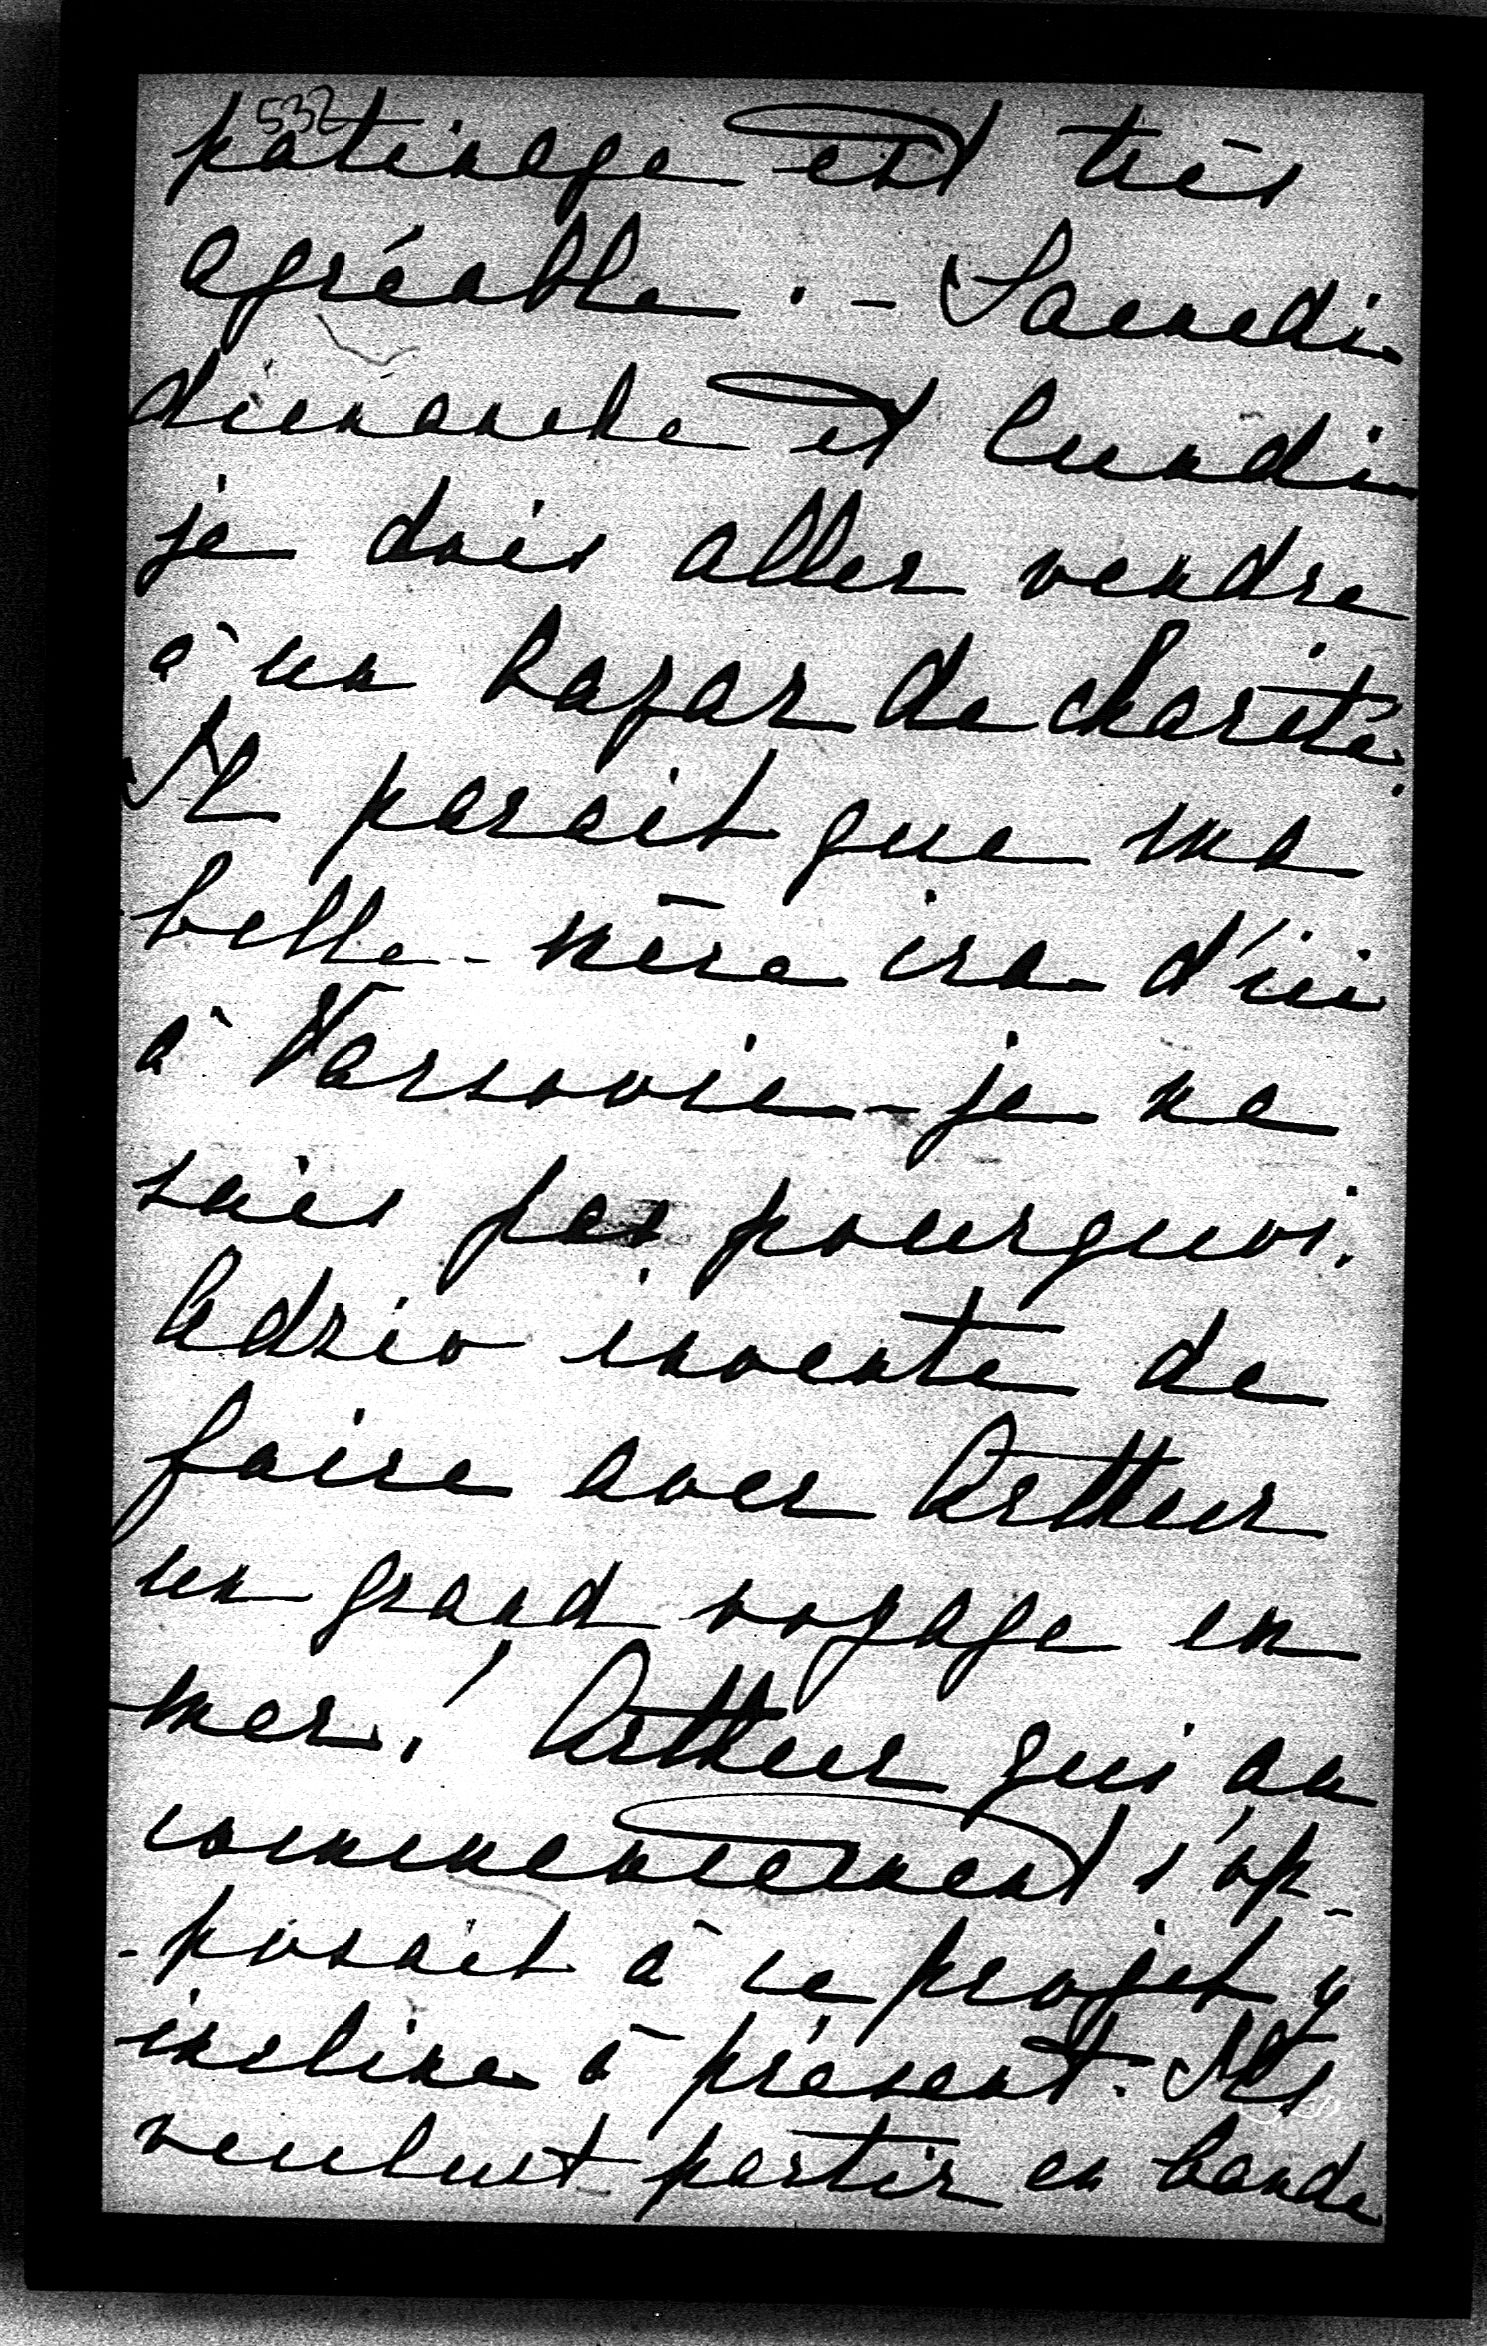 532
patinage est très
agréable. - Samedi
dimanche et lundi
je dois aller vendre
à un bazar de charité.
Il parait que ma
belle-mère ira d'ici
à Varsovie - je ne
sais pas pourquoi.
Adzio invente de
faire avec Arthur
un grand voyage en
mer! Arthur qui au
commencement s'op-
-posait à ce projet y
incline à présent. Ils
veulent partir en bande